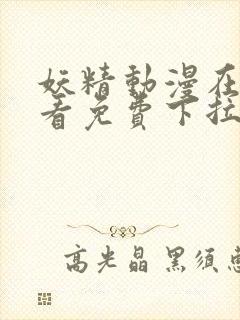 妖精動漫在
看免費下拉
高光晶 黑須